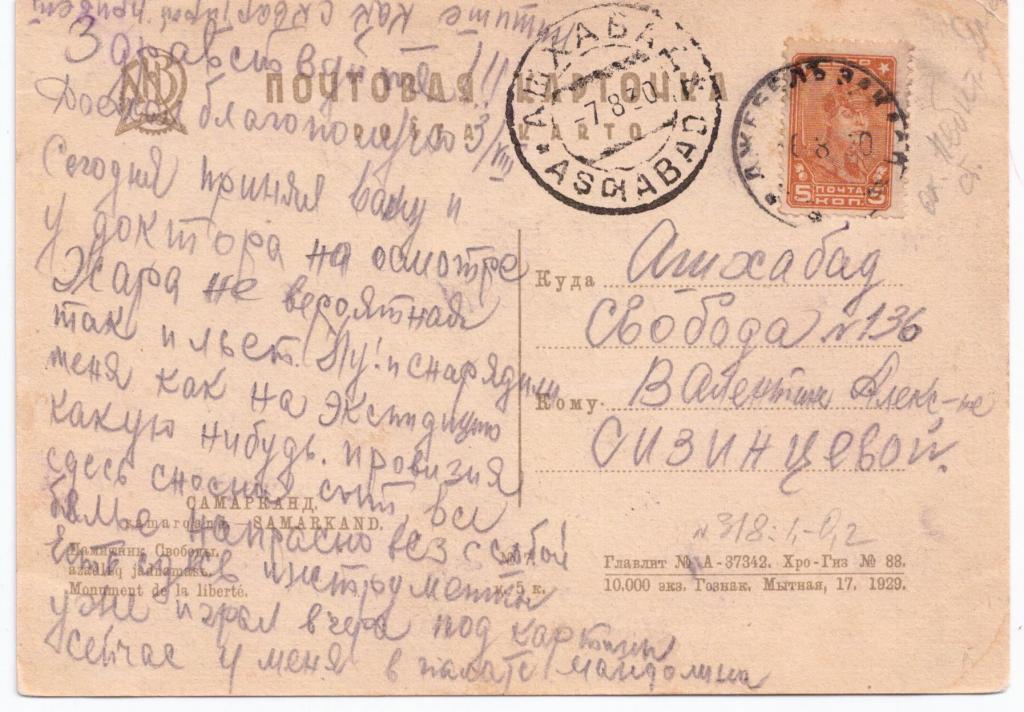 пишите как
Здравствуйте!!!
Доехал благополучно 3/VIII
Сегодня принял ванну и
у доктора на осмотре
Жара не вероятная
так и льет. Ну! и снарядили
меня как на экспидицию
какую нибудь. провизия
сдесь сносная сыт, все
белье напрасно вез с собой
Есть здесь инструменты
уже играл вчера под картины
сейчас у меня в палате мандолина
ПОЧТОВАЯ КАРТОЧКА
POŞTA KARTO
АШХАБАД
-7.8.30
ASCHABAD
ПОЧТА
5 КОП. 5
Куда Ашхабад
Свобода №136
Кому Валентине Алекс-не
Сизинцевой.
№318:1-0,2
САМАРКАНД.
SAMARKAND.
Памятник Свободы.
Monument de la liberté.
Главлит № А-37342. Хро-Гиз № 88.
10.000 экз. Гознак. Мытная, 17. 1929.